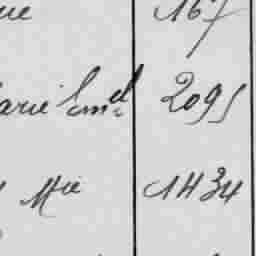 ue 167
arie Em^el 2095
Mie 1434